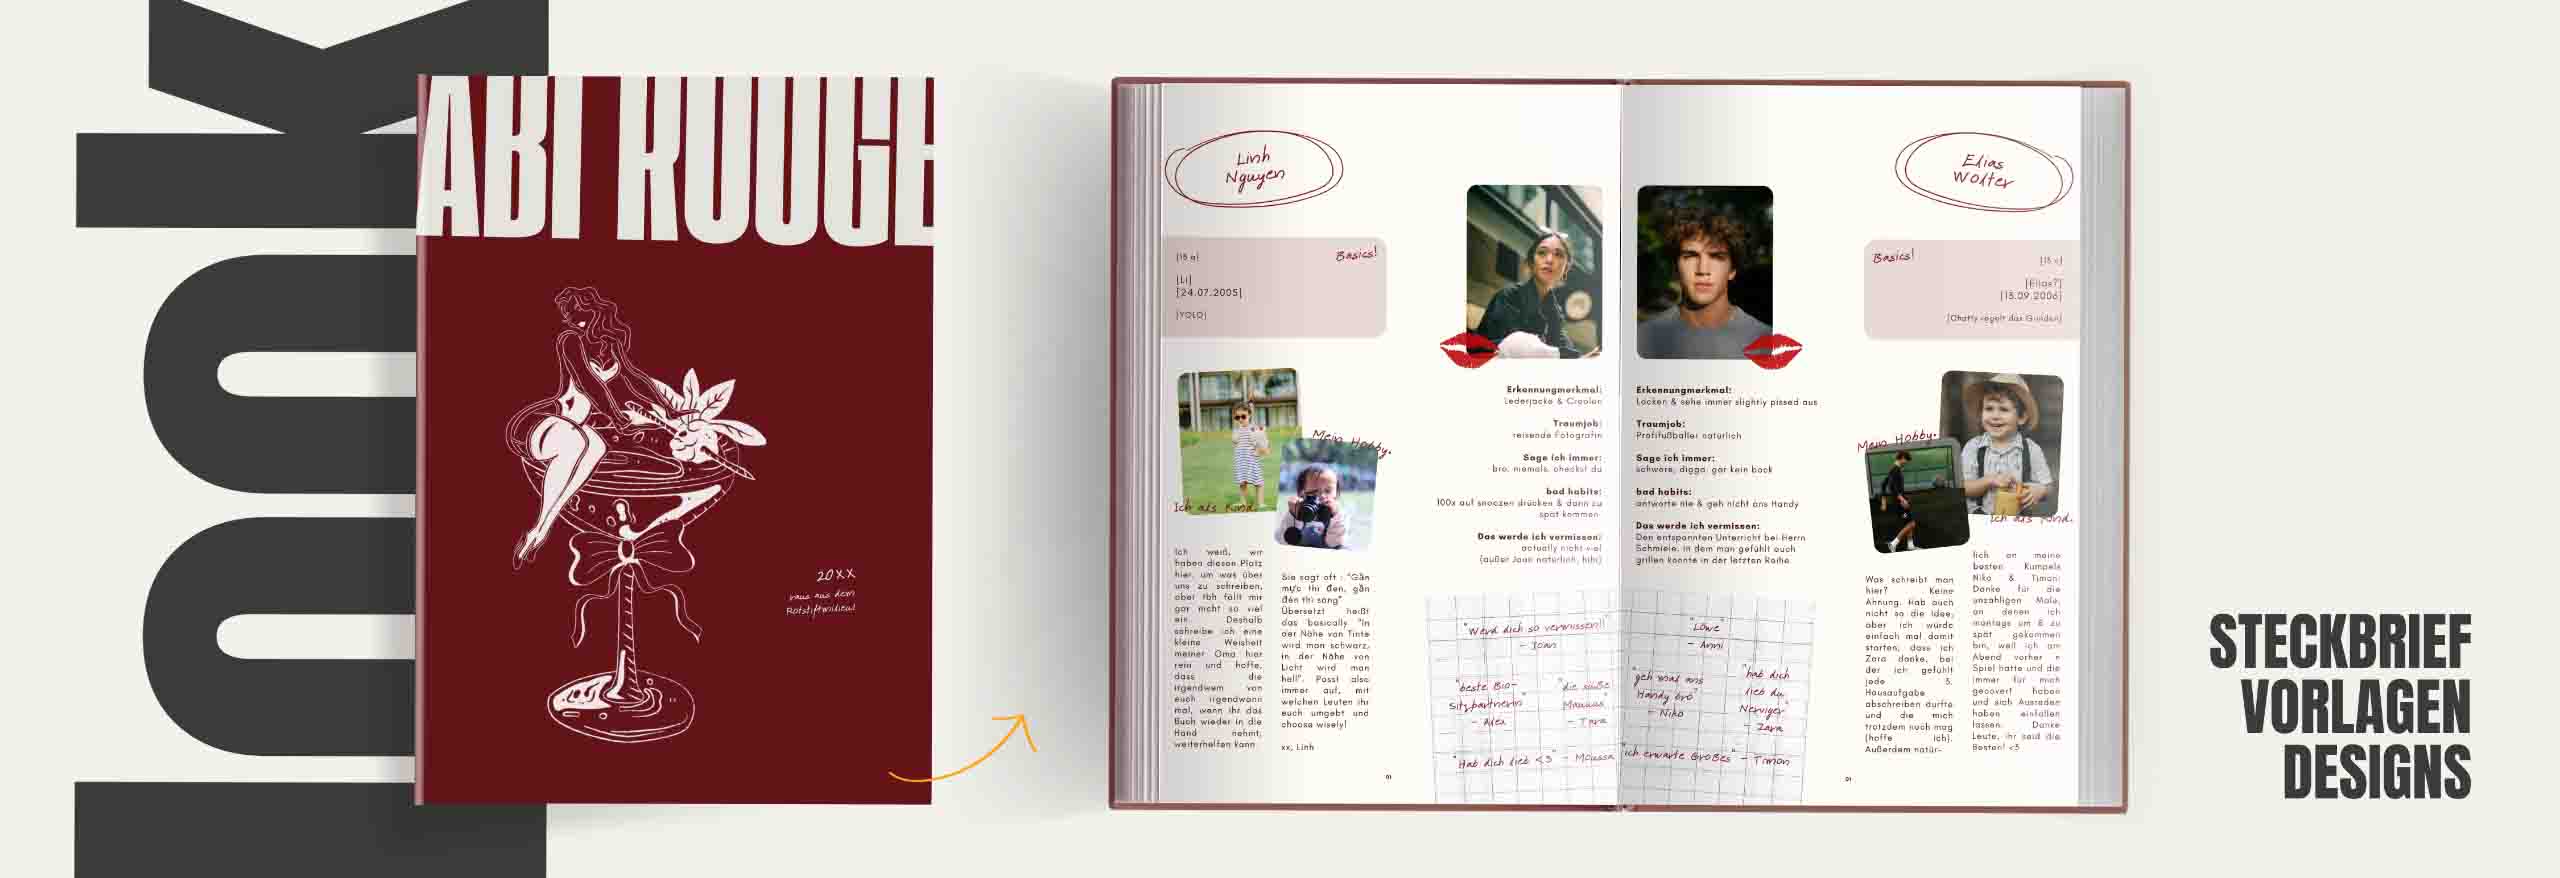 look
ABI ROUGE
20XX
raus aus dem
Rotstiftmilieu!
Linh
Nguyen
Basics!
[Li]
[24.07.2005]
[YOLO]
Erkennungmerkmal:
Lederjacke & Creolen
Traumjob:
reisende Fotografin
Sage ich immer:
bro, niemals, checkst du
bad habits:
100x auf snoozen drücken & dann zu
spät kommen
Das werde ich vermissen:
actually nicht viel
(außer Joan natürlich, hihi)
Mein Hobby.
Ich als Kind.
Ich weiß, wir
haben diesen Platz
hier, um was über
uns zu schreiben,
aber tbh fällt mir
gar nicht so viel
ein. Deshalb
schreibe ich eine
kleine Weisheit
meiner Oma hier
rein und hoffe,
dass die
irgendwem von
euch irgendwann
mal, wenn ihr das
Buch wieder in die
Hand nehmt,
weiterhelfen kann.
Sie sagt oft : "Gần
mực thì đen, gần
đèn thì sáng"
Übersetzt heißt
das basically "In
der Nähe von Tinte
wird man schwarz,
in der Nähe von
Licht wird man
hell". Passt also
immer auf, mit
welchen Leuten ihr
euch umgebt und
choose wisely!
xx, Linh
"Werd dich so vermissen!!"
- Joan
"beste Bio-
Sitzpartnerin"
- Alex
"die süße
Mauuus"
- Tara
"Hab dich lieb <3" - Moussa
01
Elias
Wolter
Basics!
[Elias?]
[13.09.2006]
[Chatty regelt das Ginden]
Erkennungmerkmal:
Locken & sehe immer slightly pissed aus
Traumjob:
Profifußballer natürlich
Sage ich immer:
schwöre, digga, gar kein bock
bad habits:
antworte nie & geh nicht ans Handy
Das werde ich vermissen:
Den entspannten Unterricht bei Herrn
Schmiele, in dem man gefühlt auch
grillen konnte in der letzten Reihe
Mein Hobby.
Ich als Kind.
Was schreibt man
hier? Keine
Ahnung. Hab auch
nicht so die Idee,
aber ich würde
einfach mal damit
starten, dass ich
Zara danke, bei
der ich gefühlt
jede 3.
Hausaufgabe
abschreiben durfte
und die mich
trotzdem noch mag
(hoffe ich).
Außerdem natür-
lich an meine
besten Kumpels
Niko & Timon:
Danke für die
unzähligen Male,
an denen ich
montags um 8 zu
spät gekommen
bin, weil ich am
Abend vorher n
Spiel hatte und die
immer für mich
gecovert haben
und sich Ausreden
haben einfallen
lassen. Danke
Leute, ihr seid die
Besten! <3
"Löwe"
- Anni
"geh mal ans
Handy bro"
- Niko
"hab dich
lieb du
Nerviger"
- Zara
"ich erwarte Großes" - Timon
01
STECKBRIEF
VORLAGEN
DESIGNS